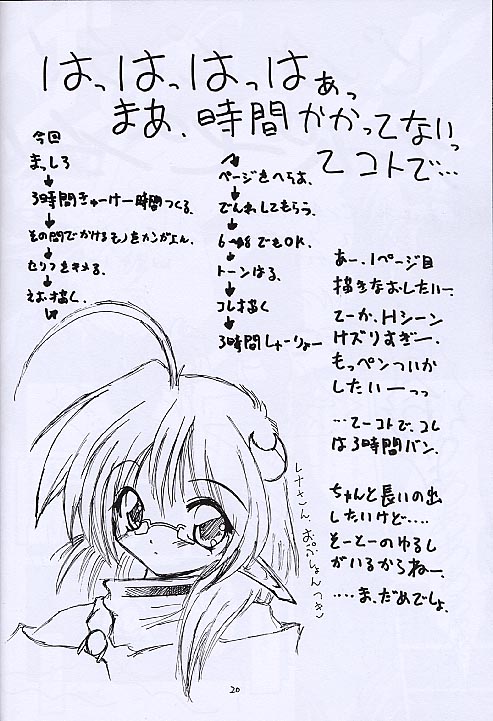 はっはっはっはぁっ
まあ、時間かかってないっ
てコトで…
今回
まっしろ
↓
3時間きゅーけー一時間つくる。
↓
その間でかけるモノをカンがえる。
↓
セリフをキメる。
↓
えお描く。
↓
ページをへらす。
↓
でんわしてもらう。
↓
6〜8でもOK。
↓
トーンはる。
↓
コレ描く
↓
3時間しゅーりょー
あー、1ページ目
描きなおしたいー、
てーか、Hシーン
ケズりすぎー、
もっペンついか
したいーっっ
…てーコトで、コレ
は3時間バン、
ちゃんと長いの出
したいけど…
そーとーのゆるし
がいるからねー、
…ま、だめでしょ、
レナさん、おぷしょんつき
20